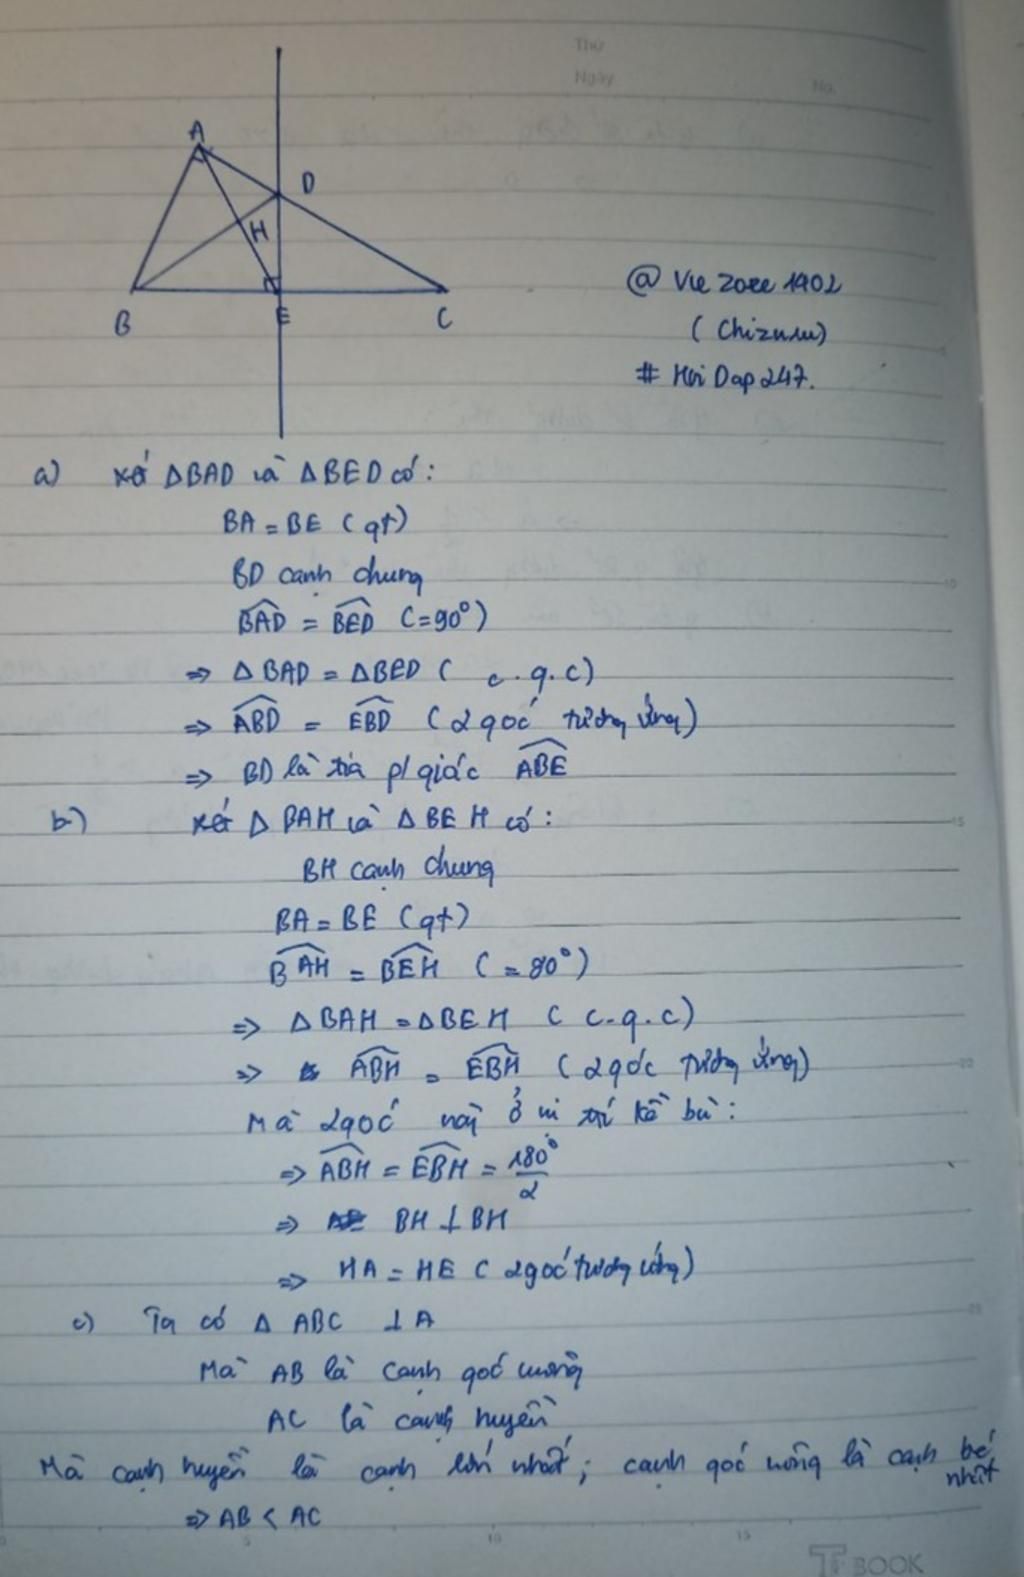 Thứ
Ngày
No.
A
D
H
B
E
C
@ Vie zoee 1902
( Chizuru)
# Hoi Dap 247.
a) xét ΔBAD và ΔBED có:
BA = BE (gt)
BD cạnh chung
BAD = BED (=90°)
=> ΔBAD = ΔBED ( c.g.c)
=> ABD = EBD (2 góc tương ứng)
=> BD là tia p/giác ABE
b) xét ΔBAH và ΔBEH có:
BH cạnh chung
BA = BE (gt)
BAH = BEH (=90°)
=> ΔBAH = ΔBEH ( c.g.c)
=> ABH = EBH (2 góc tương ứng)
Mà 2 góc này ở vị trí kề bù:
=> ABH = EBH = 180°/2
=> BH ⊥ BH
=> HA = HE ( 2 góc tương ứng)
c) Ta có Δ ABC ⊥ A
Mà AB là cạnh góc vuông
AC là cạnh huyền
Mà cạnh huyền là cạnh lớn nhất; cạnh góc vuông là cạnh bé
nhất
=> AB < AC
5 10 15
BOOK